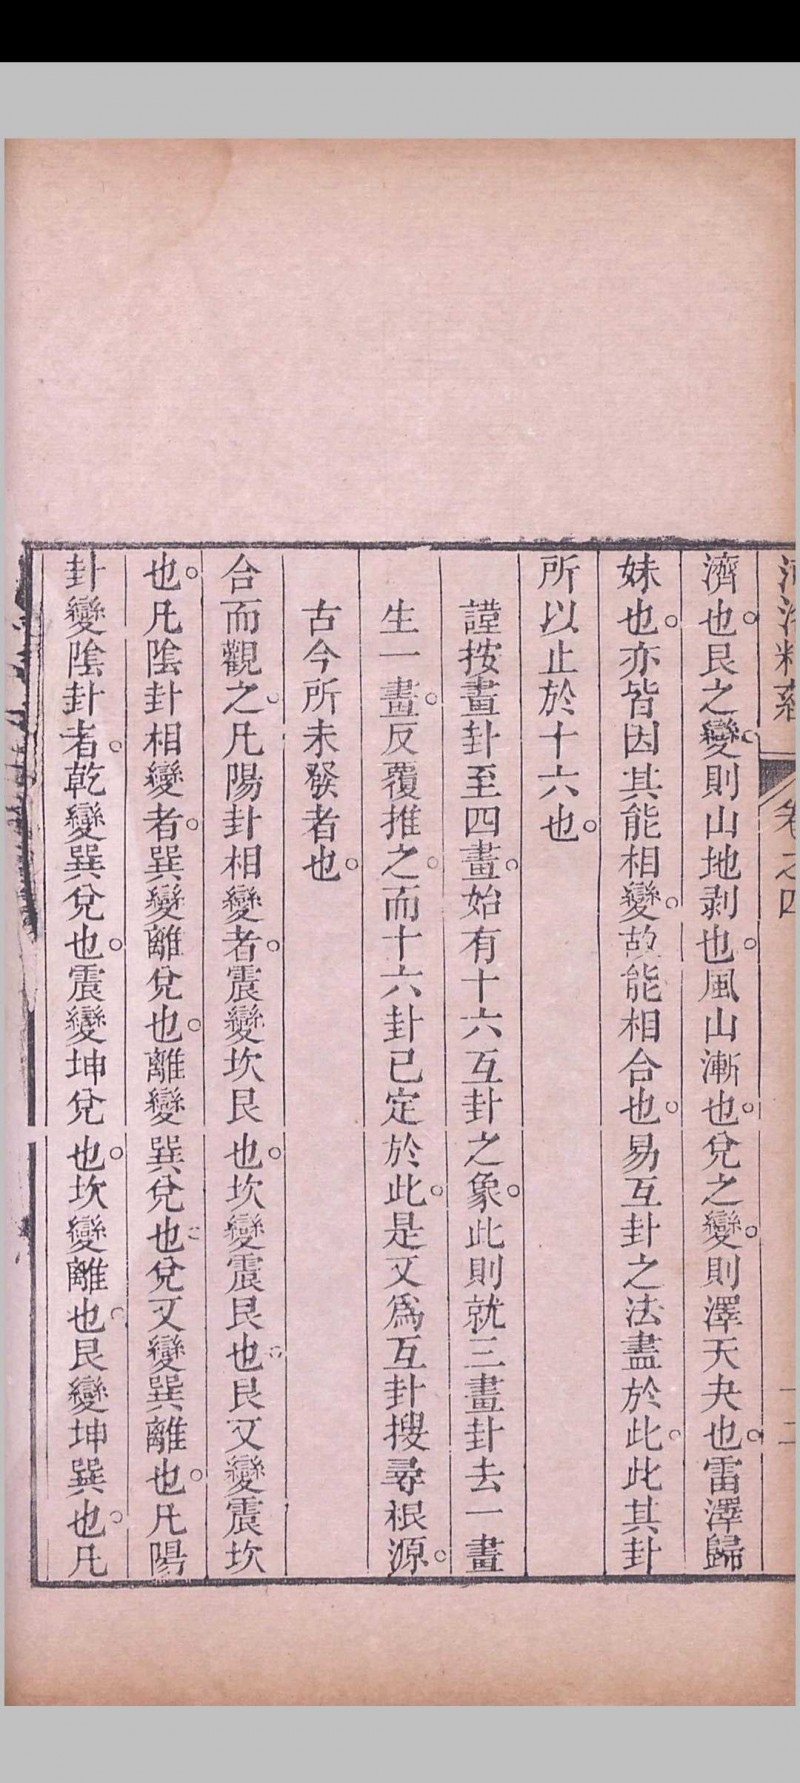 河洛精蘊 卷之四 十二
濟也。艮之變。則山地剥也。風山漸也。兌之變。則澤天夬也。雷澤歸
妹也。亦皆因其能相變。故能相合也。易互卦之法盡於此。此其卦
所以止於十六也。
謹按畫卦至四畫。始有十六互卦之象。此則就三畫卦去一畫
生一畫。反覆推之。而十六卦已定於此。是又爲互卦搜尋根源。
古今所未發者也。
合而觀之。凡陽卦相變者。震變坎艮也。坎變震艮也。艮又變震坎
也。凡陰卦相變者。巽變離兌也。離變巽兌也。兌又變巽離也。凡陽
卦變陰卦者。乾變巽兌也。震變坤兌也。坎變離也。艮變坤巽也。凡